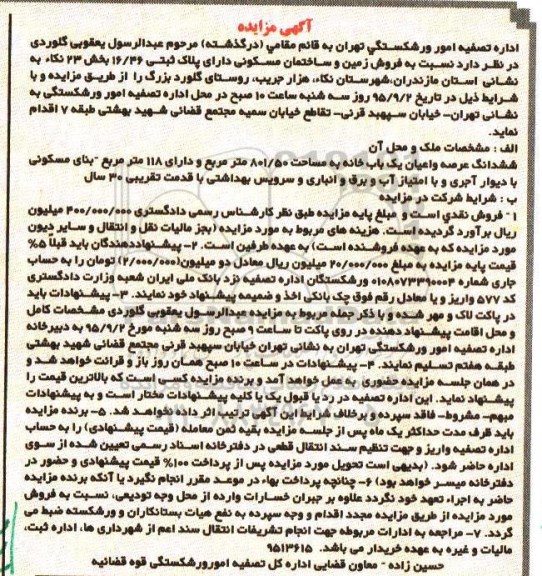 آگهی مزایده
اداره تصفیه امور ورشکستگي تهران به قائم مقامي (درگذشته) مرحوم عبدالرسول یعقوبی گلوردی
در نظر دارد نسبت به فروش زمین و ساختمان مسکونی دارای پلاک ثبتی ۱۶/۴۶ بخش ۲۳ نکاء به
نشانی استان مازندران،شهرستان نکاء، هزار جریب، روستای گلورد بزرگ را از طریق مزایده و با
شرایط ذیل در تاریخ ۹۵/۹/۲ روز سه شنبه ساعت ۱۰ صبح در محل اداره تصفیه امور ورشکستگی به
نشانی تهران- خیابان سپهبد قرنی- تقاطع خیابان سمیه مجتمع قضائی شهید بهشتی طبقه ۷ اقدام
نماید.
الف : مشخصات ملک و محل آن
ششدانگ عرصه واعیان یک باب خانه به مساحت ۸۰۱/۵۰ متر مربع و دارای ۱۱۸ متر مربع -بنای مسکونی
با دیوار آجری و با امتیاز آب و برق و انباری و سرویس بهداشتی با قدمت تقریبی ۳۰ سال
ب : شرایط شرکت در مزایده
۱- فروش نقدي است و مبلغ پایه مزایده طبق نظر کارشناس رسمی دادگستری ۴۰۰/۰۰۰/۰۰۰ میلیون
ریال برآورد گردیده است. هزینه های مربوط به مورد مزایده (بجز مالیات نقل و انتقال و سایر دیون
مورد مزایده که به عهده فروشنده است) به عهده طرفین است. ۲- پیشنهاددهندگان باید قبلاً ۵%
قیمت پایه مزایده به مبلغ ۲۰/۰۰۰/۰۰۰ میلیون ریال معادل دو میلیون(۲/۰۰۰/۰۰۰) تومان را به حساب
جاری شماره ۰۱۰۸۰۷۳۳۹۰۰۰۴ ورشکستگان اداره تصفیه نزد بانک ملی ایران شعبه وزارت دادگستری
کد ۵۷۷ واریز و یا معادل رقم فوق چک بانکی اخذ و ضمیمه پیشنهاد خود نمایند. ۳- پیشنهادات باید
در پاکت لاک و مهر شده و با ذکر جمله مربوط به مزایده عبدالرسول یعقوبی گلوردی مشخصات کامل
و محل اقامت پیشنهاد دهنده در روی پاکت تا ساعت ۹ صبح روز سه شنبه مورخ ۹۵/۹/۲ به دبیرخانه
اداره تصفیه امور ورشکستگی تهران به نشانی تهران خیابان سپهبد قرنی مجتمع قضائی شهید بهشتی
طبقه هفتم تسلیم نمایند. ۴- پیشنهادات در ساعت ۱۰ صبح همان روز باز و قرائت خواهد شد و
در همان جلسه مزایده حضوری به عمل خواهد آمد و برنده مزایده کسی است که بالاترین قیمت را
پیشنهاد نماید. این اداره تصفیه در رد یا قبول یک یا کلیه پیشنهادات مختار است و به پیشنهادات
مبهم- مشروط- فاقد سپرده و برخلاف شرایط این آگهی ترتیب اثر داده نخواهد شد. ۵- برنده مزایده
باید ظرف مدت حداکثر یک ماه پس از جلسه مزایده بقیه ثمن معامله (قیمت پیشنهادی) را به حساب
اداره تصفیه واریز و جهت تنظیم سند انتقال قطعی در دفترخانه اسناد رسمی تعیین شده از سوی
اداره حاضر شود. (بدیهی است تحویل مورد مزایده پس از پرداخت ۱۰۰% قیمت پیشنهادی و حضور در
دفترخانه میسر خواهد بود) ۶- چنانچه پرداخت بهاء در موعد مقرر انجام نگیرد یا آنکه برنده مزایده
حاضر به اجراء تعهد خود نگردد علاوه بر جبران خسارات وارده از محل وجه تودیعی، نسبت به فروش
مورد مزایده از طریق مزایده مجدد اقدام و وجه سپرده به نفع هیات بستانکاران و ورشکسته ضبط می
گردد. ۷- مراجعه به ادارات مربوطه جهت انجام تشریفات انتقال سند اعم از شهرداری ها، اداره ثبت،
مالیات و غیره به عهده خریدار می باشد. ۹۵۱۳۶۱۵
حسین زاده - معاون قضایی اداره کل تصفیه امورورشکستگی قوه قضائیه